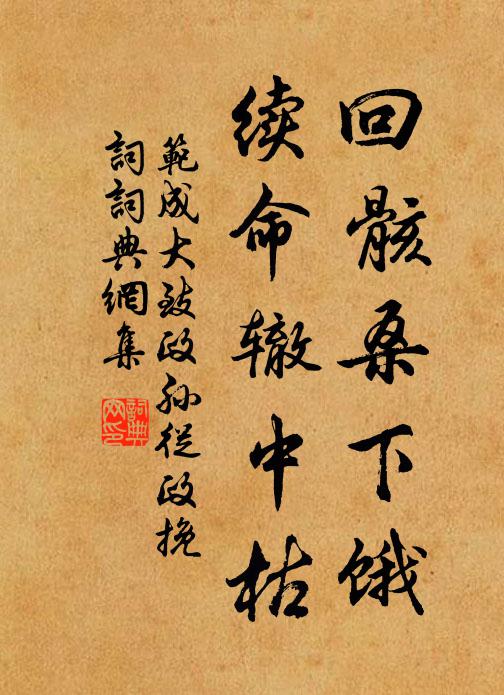 回骸桑下饿
续命辙中枯
範成大致政孙從政挽
詞詞典網集
詞典
网印